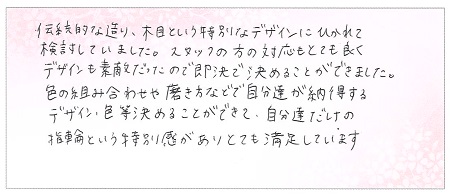 伝統的な造り、木目という特別なデザインにひかれて
検討していました。スタッフの方の対応もとても良く
デザインも素敵だったので即決で決めることができました。
色の組み合わせや磨き方などで自分達が納得する
デザイン・色等決めることができて、自分達だけの
指輪という特別感がありとても満足しています